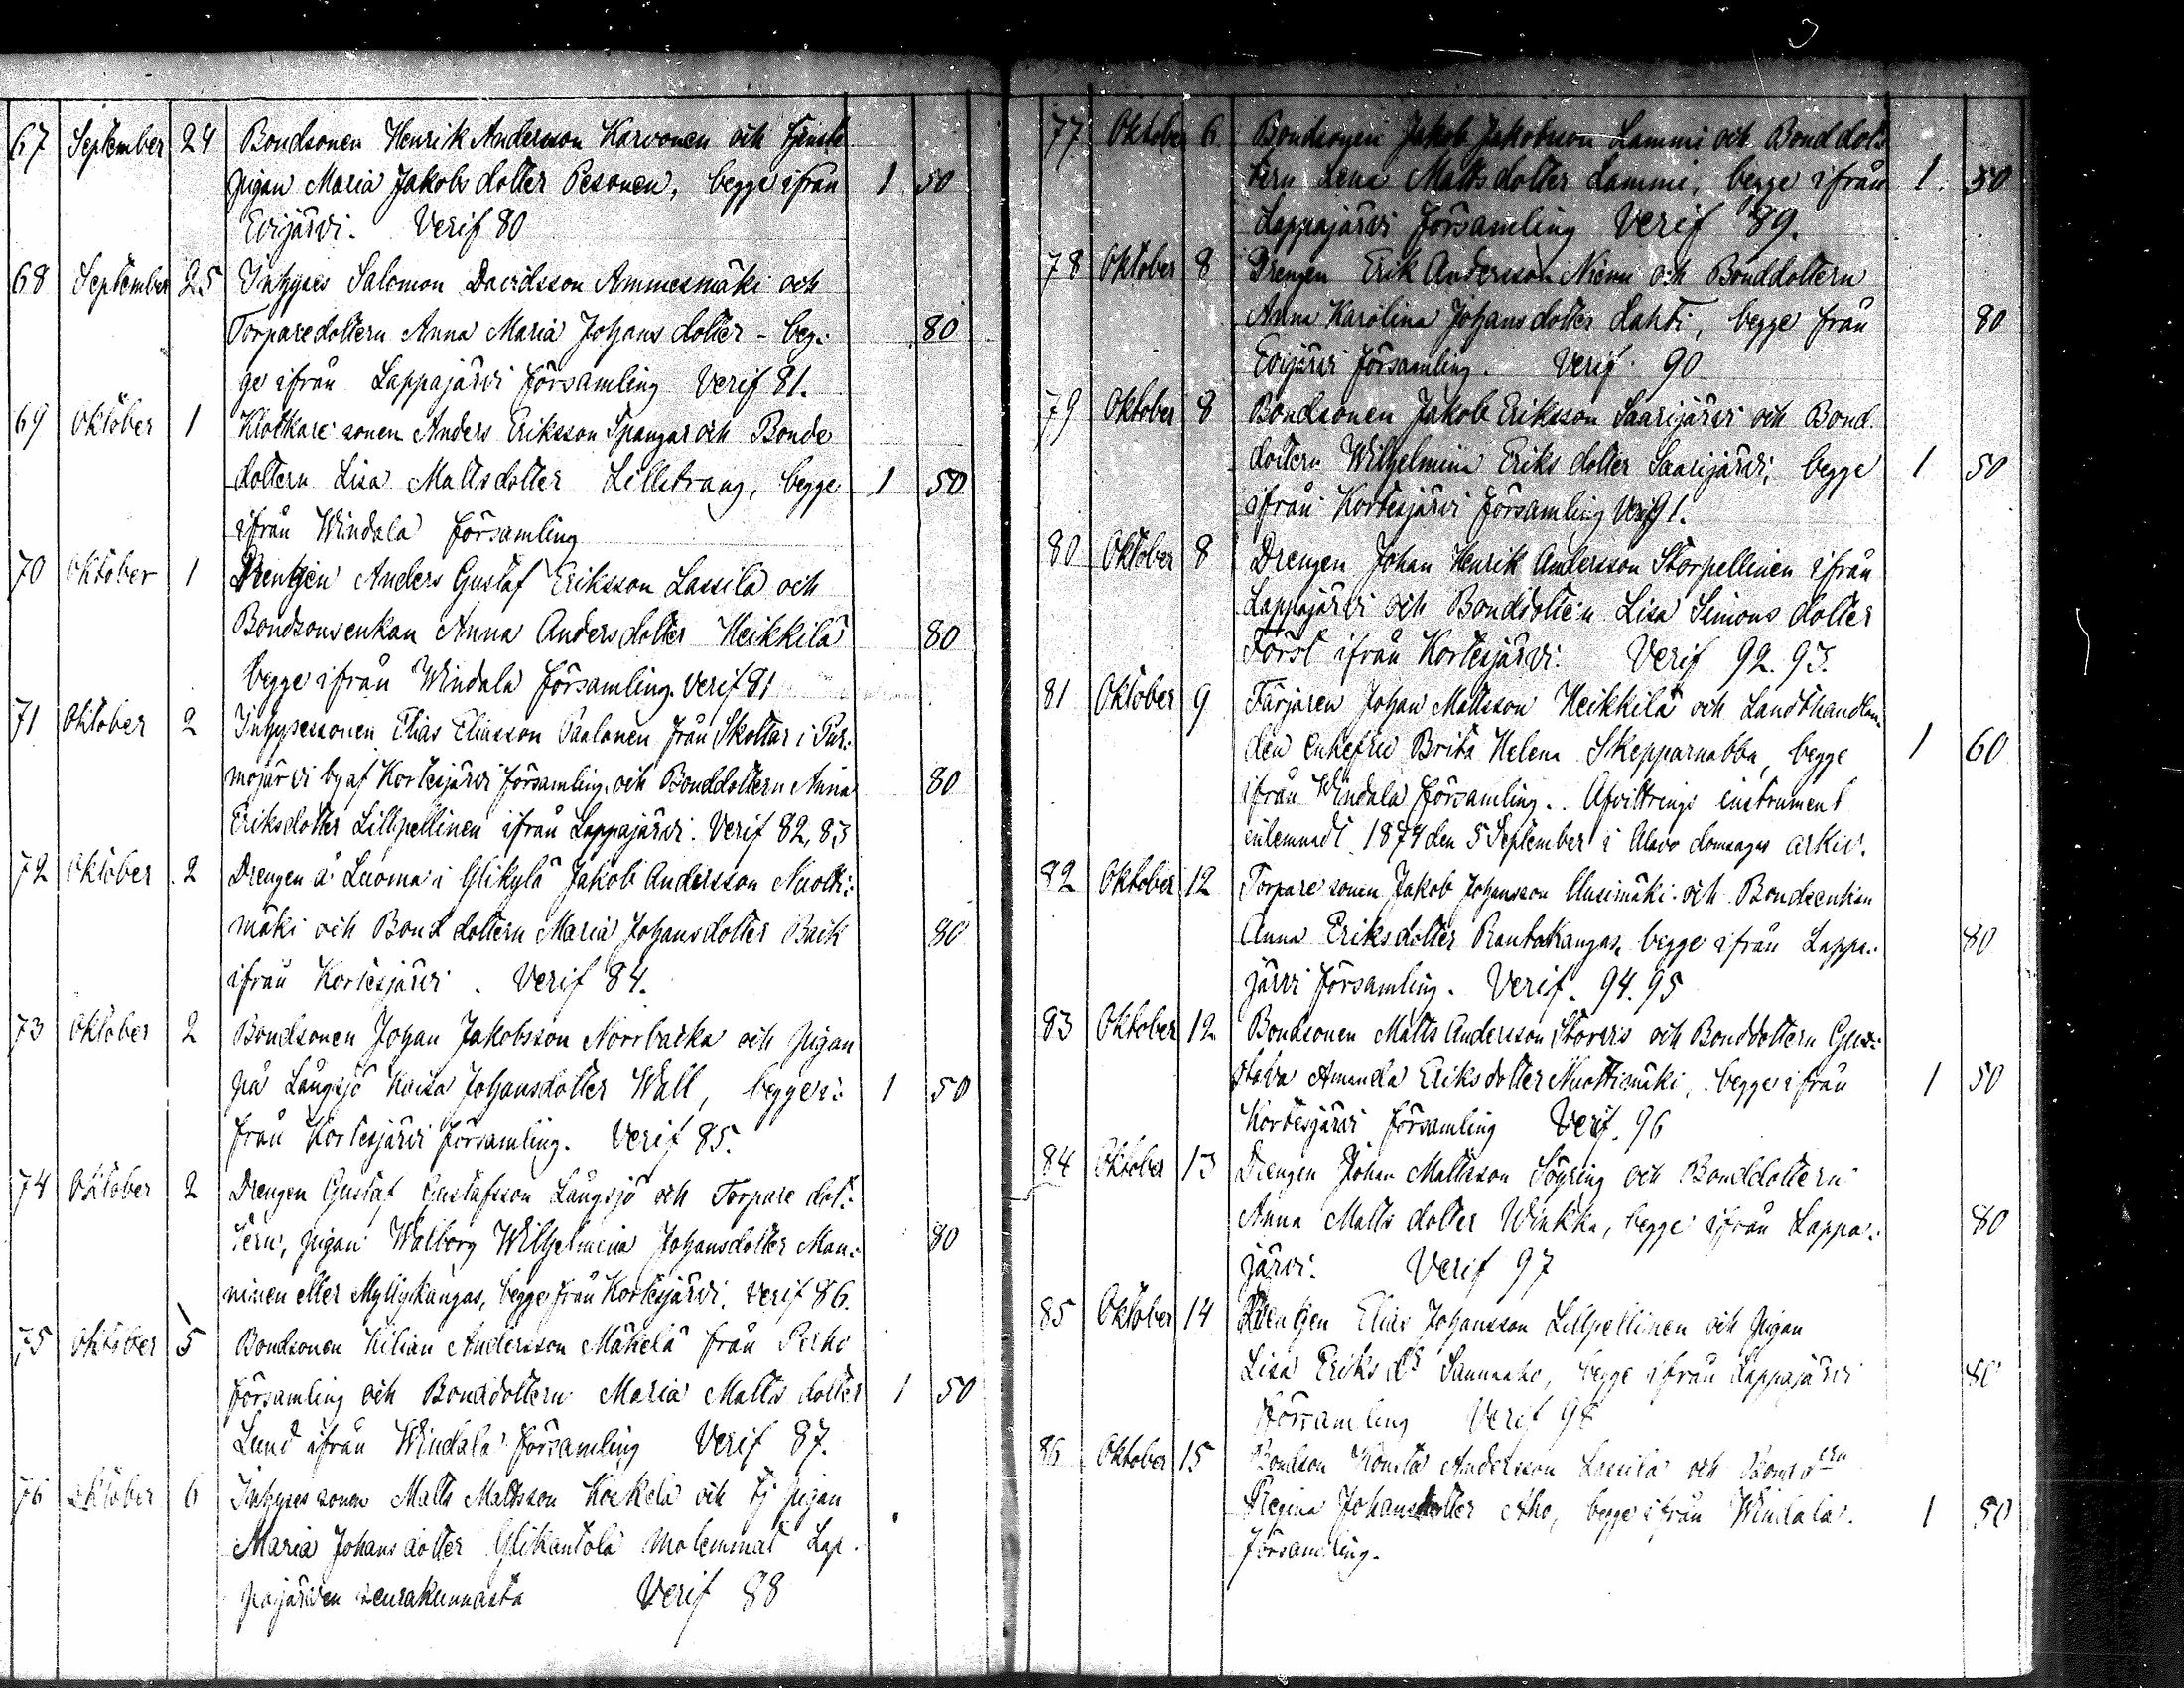 67 September 24 Bondsonen Henrik Andersson Karvonen och tjenste
pigan Maria Jakobs dotter Pesonen, begge ifrån 1 50
Evijärvi. Verif 80
68 September 25 Inhyses Salomon Davidsson Ammesmäki och
Torparedottern Anna Maria Johans dotter - beg: 80
ge ifrån Lappajärvi församling Verif 81.
69 Oktober 1 Klockare sonen Anders Eriksson Spangar och Bonde
dottern Lisa Mattsdotter Lillstrang, begge 1 50
ifrån Windala församling
70 Oktober 1 Drengen Anders Gustaf Eriksson Lassila och
Bondsonsenkan Anna Andersdotter Heikkilä 80
begge ifrån Windala församling. Verif 81
71 Oktober 2 Inhysessonen Elias Eliasson Paalanen från Skottar i Pur:
mojärvi by af Kortesjärvi församling och Bonddottern Anna 80
Eriksdotter Lillpellinen ifrån Lappajärvi. Verif 82, 83
72 Oktober 2 Drengen å Luoma i Ylikylä Jakob Andersson Nuotti:
mäki och Bond dottern Maria Johansdotter Back 80
ifrån Kortesjärvi. Verif 84.
73 Oktober 2 Bondsonen Johan Jakobsson Norrbacka och pigan
på Långsjö Kaisa Johansdotter Wall, begge i: 1 50
från Kortesjärvi församling. Verif 85.
74 Oktober 2 Drengen Gustaf Gustafsson Långsjö och Torpare dot:
tern, pigan Walborg Wilhelmina Johansdotter Man: 80
ninen eller Myllykangas, begge från Kortesjärvi. Verif 86.
75 Oktober 5 Bondsonen Kilian Andersson Mäkelä från Perho
församling och Bonddottern Maria Matts dotter 1 50
Lund ifrån Windala församling Verif 87.
76 Oktober 6 Inhyses sonen Matts Mattsson Koskela och tj pigan
Maria Johans dotter Ylikantola molemmat Lap.
pajärven seurakunnasta Verif 88
77 Oktober 6 Bondsonen Jakob Jakobsson Lammi och Bond dot:
tern Lena Mattsdotter Lammi, begge ifrån 1. 50
Lappajärvi församling Verif 89.
78 Oktober 8 Drengen Erik Andersson Niemi och Bonddottern
Anna Karolina Johansdotter Lahti, begge från 80
Evijärvi församling. Verif. 90
79 Oktober 8 Bondsonen Jakob Eriksson Saarijärvi och Bond
dottern Wilhelmina Eriks dotter Saarijärvi, begge 1 50
ifrån Kortesjärvi församling Verif 91.
80 Oktober 8 Drengen Johan Henrik Andersson Storpellinen ifrån
Lappajärvi och Bonddottern Lisa Simons dotter
Först ifrån Kortesjärvi. Verif 92. 93.
81 Oktober 9 Färjaren Johan Mattsson Heikkilä och Landthandlan:
den enkefru Brita Helena Skepparnabba, begge 1 60
ifrån Windala församling. Afvittrings instrument
inlemnadt 1874 den 5 September i Alavo domsagas arkiv.
82 Oktober 12 Torpare sonen Jakob Johansson Uusimäki och Bondeenkan
Anna Eriksdotter Rantakangas, begge ifrån Lappa: 80
järvi församling. Verif. 94. 95
83 Oktober 12 Bondsonen Matts Andersson Storars och Bonddottern Gus:
stava Amanda Eriksdotter Nuottimäki, begge ifrån 1 50
Kortesjärvi församling Verif. 96
84 Oktober 13 Drengen Johan Mattsson Söyring och Bonddottern
Anna Matts dotter Winkka, begge ifrån Lappa: 80
järvi. Verif 97
85 Oktober 14 Drengen Elias Johansson Lillpellinen och pigan
Lisa Eriks dr Sannaho, begge ifrån Lappajärvi 80
församling Verif 98
86 Oktober 15 Bondson Konsta Andersson Lassila och
Regina Johansdotter Aho, begge ifrån Windala. 1 50
församling.